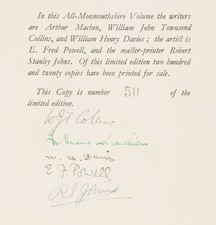 In this All-Monmouthshire Volume the writers
are Arthur Machen, William John Townsend
Collins, and William Henry Davies; the artist is
E. Fred Powell, and the master-printer Robert
Stanley Johns. Of this limited edition two hundred
and twenty copies have been printed for sale.
This Copy is number 50
of the
limited edition.
W J T Collins
Arthur Machen
W. H. Davies
E F Powell
R S Johns